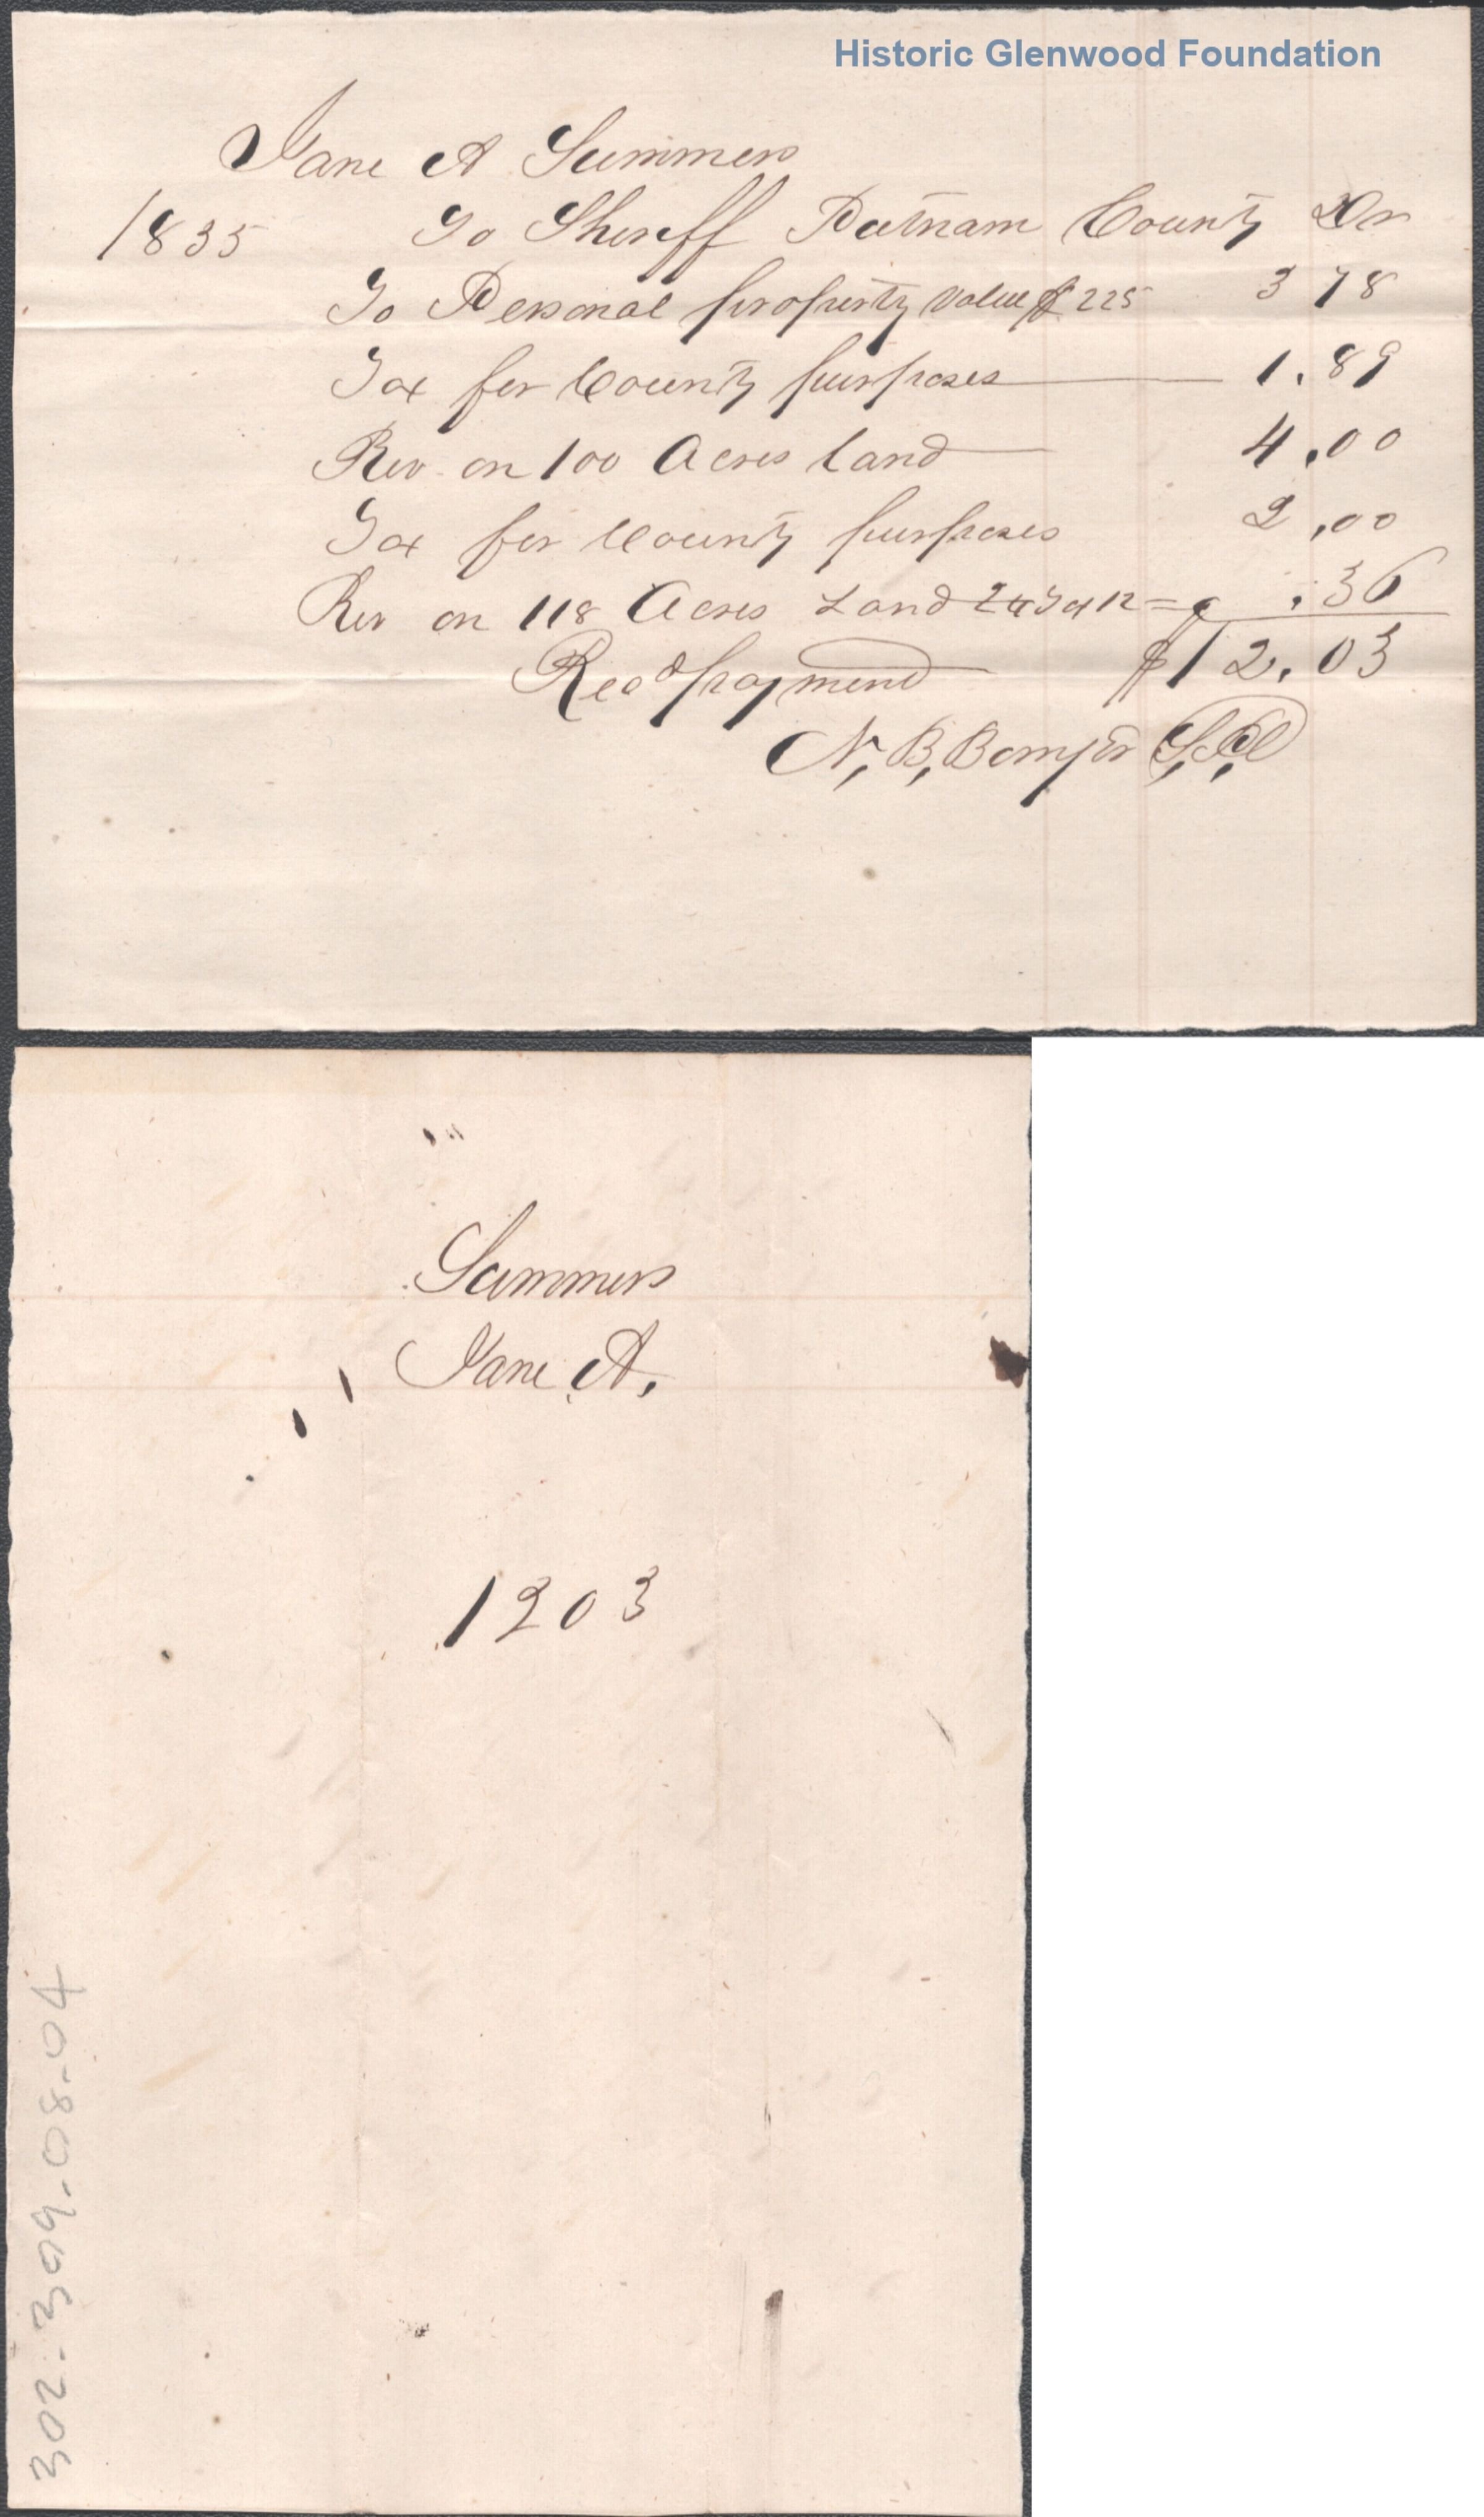 Historic Glenwood Foundation
Jane A Summers
1835 To Sheriff Putnam County Dr
To Personal property value $225 3 78
Tax for County purposes 1.89
Rev on 100 Acres Land 4.00
Tax for County purposes 2,00
Rev on 118 Acres Land .36
Recd payment $12.03
N, B,
Summers
Jane A,
1203
302-309-08-04